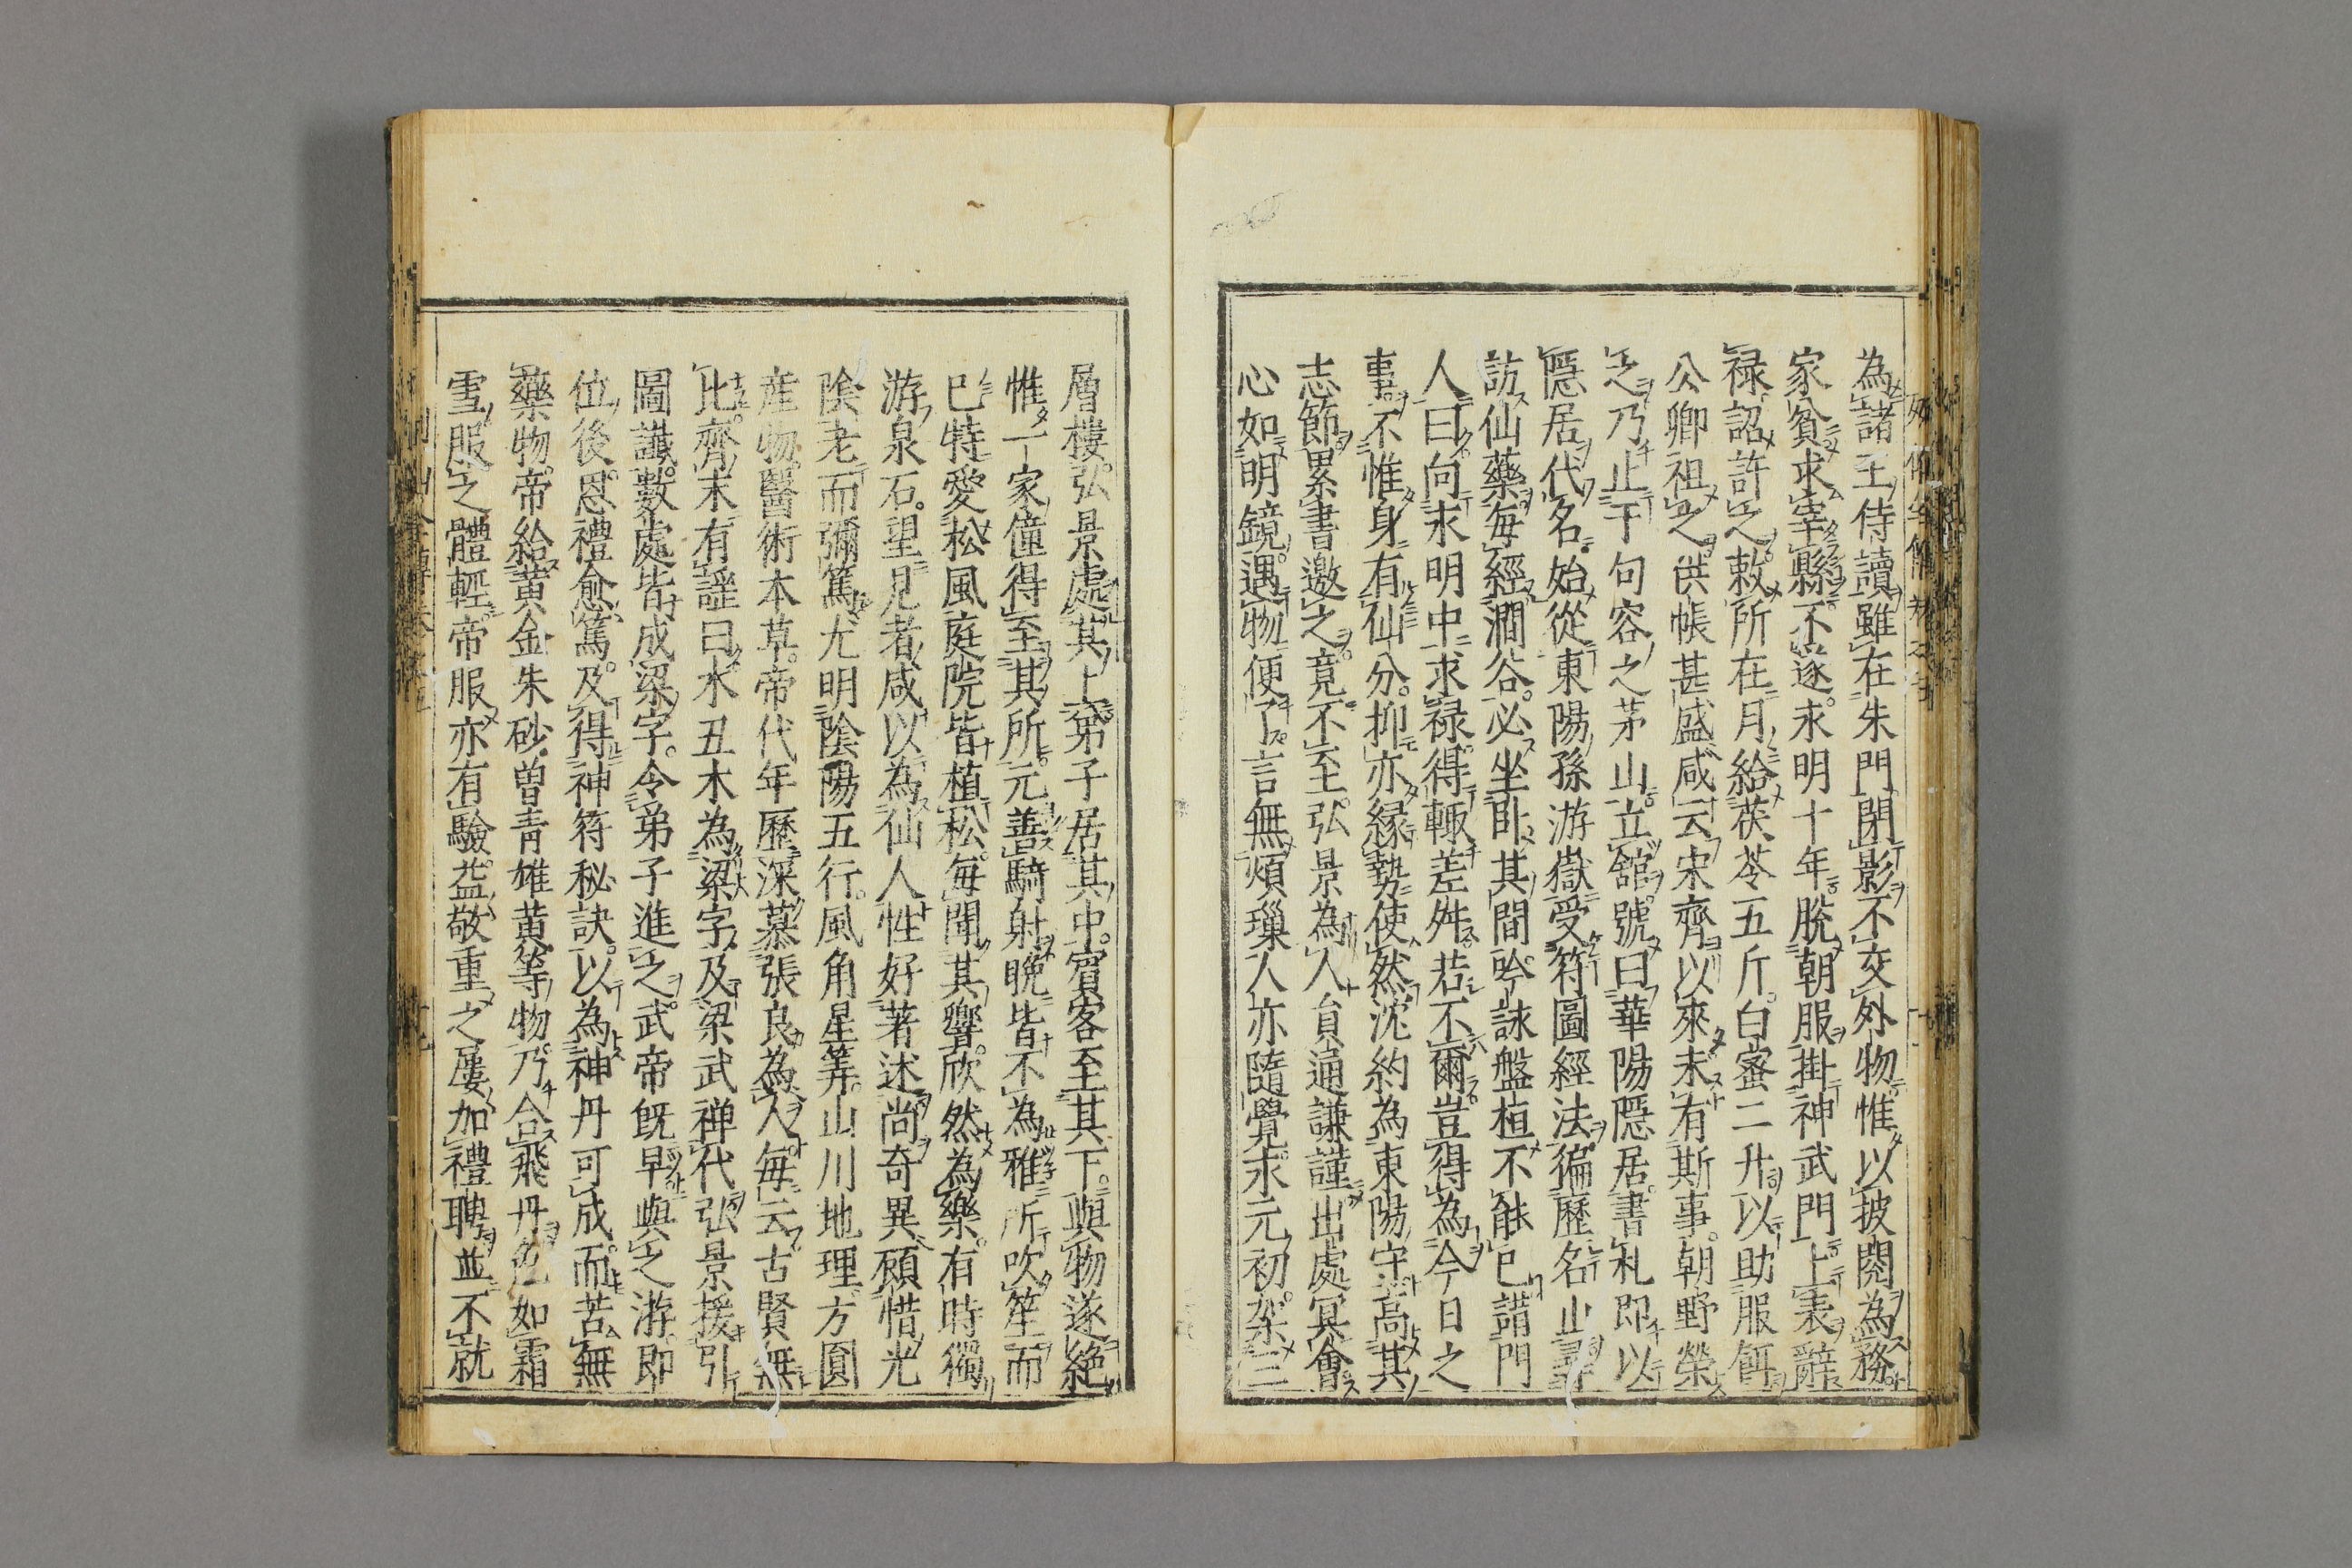 為諸王侍讀雖在朱門閉影不交外物惟以披閱為務
家貧求宰縣不遂永明十年脫朝服掛神武門上表辭
禄詔許之敕所在月給茯苓五斤白蜜二升以助服餌
公卿祖之供帳甚盛咸云宋齊以來未有斯事朝野榮
之乃止于句容之茅山立舘號曰華陽隱居書札即以
隱居代名始從東陽孫游嶽受符圖經法徧歷名山尋
訪仙藥每經澗谷必坐卧其間吟詠盤桓不能已謂門
人曰向求明中求禄得輙差舛若不爾豈得為今日之
事不惟身有仙分抑亦緣勢使然沈約為東陽守高其
志節累書邀之竟不至弘景為人員通謙謹出處冥會
心如明鏡遇物便了言無煩瓅人亦隨覺永元初架三
層樓弘景處其上弟子居其中賓客至其下與物遂絕
惟一家僮得至其所元善騎射晚皆不為雅所吹笙而
已特愛松風庭院皆植松每聞其響欣然為樂有時獨
游泉石望見者咸以為仙人性好著述尚奇異顧惜光
陰老而彌篤尤明陰陽五行風角星筭山川地理方圓
產物醫術本草帝代年歷深慕張良為人每云古賢無
比齊末有謡曰水丑木為梁字及梁武禅代弘景援引
圖讖數處皆成梁字令弟子進之武帝既早與之游即
位後恩禮愈篤及得神符秘訣以為神丹可成而苦無
藥物帝給黃金朱砂曾青雄黃等物乃合飛丹色如霜
雪服之體輕帝服亦有驗益敬重之屢加禮聘並不就